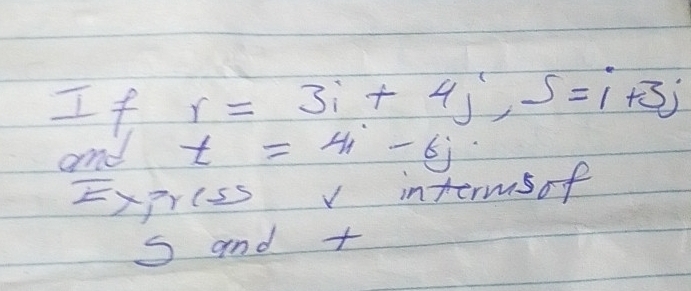 If r = 3i + 4j, S = i + 3j
and t = 4i - 6j.
Express r interms of
S and t